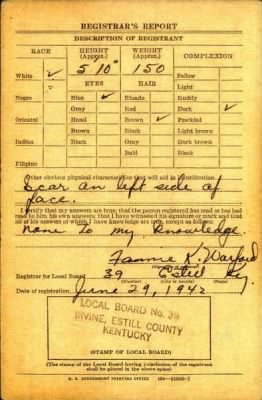 REGISTRAR'S REPORT
DESCRIPTION OF REGISTRANT
RACE HEIGHT (Approx.) WEIGHT (Approx.) COMPLEXION
5' 10" 150
White ✓ EYES HAIR Sallow
Light
Negro Blue ✓ Blonde Ruddy
Gray Red Dark ✓
Oriental Hazel Brown ✓ Freckled
Brown Black Light brown
Indian Black Gray Dark brown
Bald Black
Filipino
Other obvious physical characteristics that will aid in identification
Scar on left side of
face.
I certify that my answers are true; that the person registered has read or has had
read to him his own answers; that I have witnessed his signature or mark and that
all of his answers of which I have knowledge are true, except as follows:
None to my knowledge
Fannie K. Warford
Registrar for Local Board 39 Estill Ky.
Date of registration June 29, 1942
LOCAL BOARD No. 39
IRVINE, ESTILL COUNTY
KENTUCKY
(STAMP OF LOCAL BOARD)
(The stamp of the Local Board having jurisdiction of the registrant
shall be placed in the above space)
U. S. GOVERNMENT PRINTING OFFICE